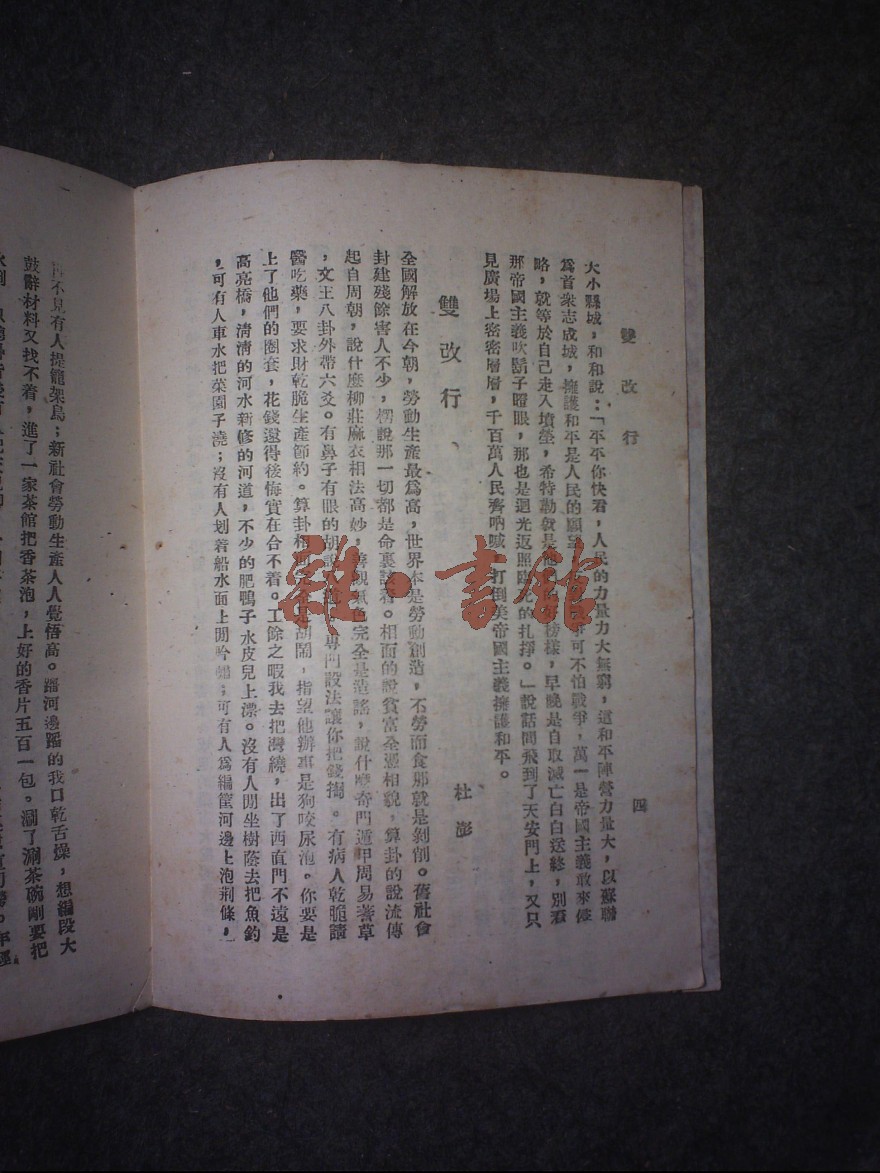 雙改行
四
大小縣城，和和說：「平平你快看，人民的力量力大無窮，這和平陣營力量大，以蘇聯
爲首衆志成城，擁護和平是人民的願望，可不怕戰爭，萬一是帝國主義敢來侵
略，就等於自己走入墳塋，希特勒就是他榜樣，早晚是自取滅亡白白送終，別看
那帝國主義吹鬍子瞪眼，那也是迴光返照臨的扎掙。」說話間飛到了天安門上，又只
見廣場上密密層層，千百萬人民齊吶喊，打倒美帝國主義擁護和平。
雙改行、
杜澎
全國解放在今朝，勞動生產最爲高，世界本是勞動創造，不勞而食那就是剝削。舊社會
封建殘餘害人不少，楞說那一切都是命裏該着。相面的說貧富全憑相貌，算卦的說流傳
起自周朝，說什麼柳莊麻衣相法高妙，善觀氣色完全是造謠，說什摩奇門遁甲周易蓍草
，文王八卦外帶六爻。有鼻子有眼的胡說專門設法讓你把錢掏。有病人乾脆請
醫吃藥，要求財乾脆生產節約。算卦相是胡鬧，指望他辦事是狗咬尿泡。你要是
上了他們的圈套，花錢還得後悔實在合不着。工餘之暇我去把灣繞，出了西直門不遠是
高亮橋，清清的河水新修的河道，不少的肥鴨子水皮兒上漂。沒有人閒坐樹蔭去把魚釣
，可有人車水把菜園子澆；沒有人划着船水面上閒吟嘯；可有人爲編筐河邊上泡荆條，
不見有人提籠架鳥；新社會勞動生產人人覺悟高。蹓河邊蹓的我口乾舌燥，想編段大
鼓辭材料又找不着，進了一家茶館把香茶泡，上好的香片五百一包。涮了涮茶碗剛要把
雜·書館